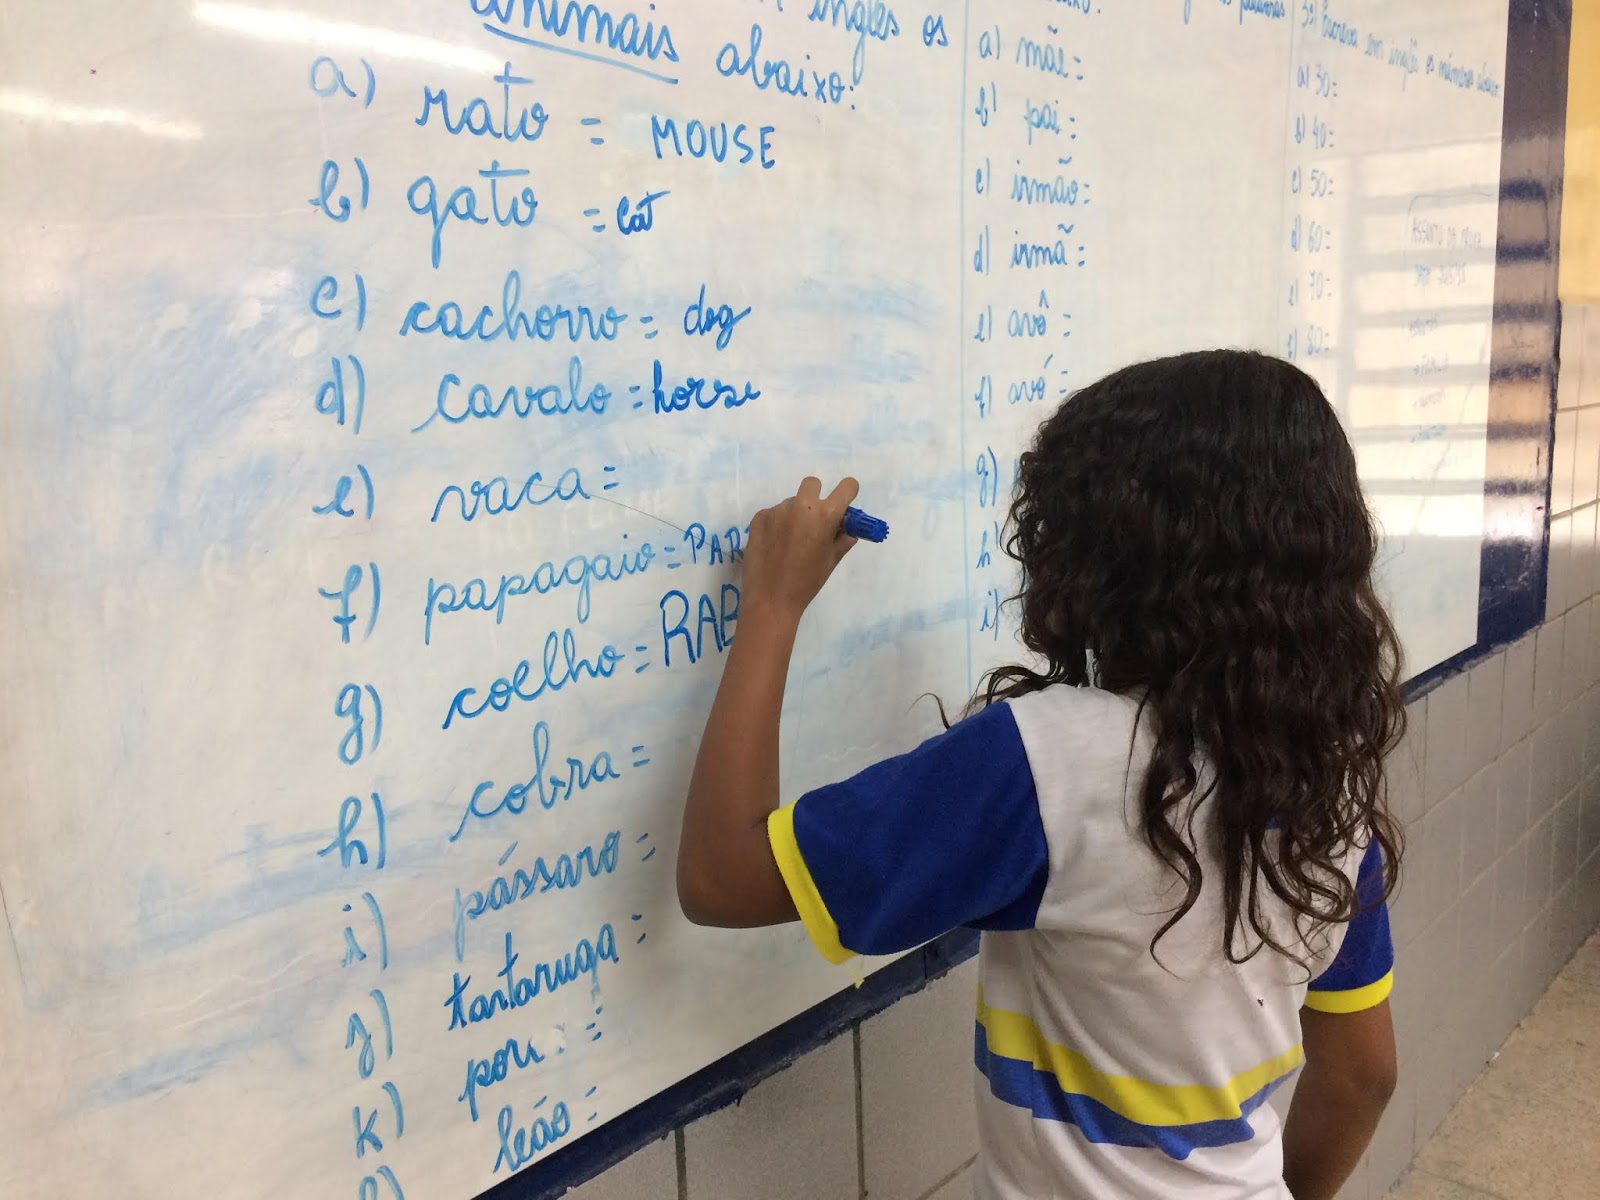 inglês os
animais abaixo:
a) rato = MOUSE
b) gato = cat
c) cachorro = dog
d) cavalo = horse
e) vaca =
f) papagaio = PAR
g) coelho = RAB
h) cobra =
i) pássaro =
j) tartaruga =
k)
l) leão =
a) mãe =
b) pai =
c) irmão =
d) irmã =
e) avô =
f) avó =
g)
h)
i)
em inglês os números abaixo
a) 30 =
b) 40 =
c) 50 =
d) 60 =
e) 70 =
f) 80 =